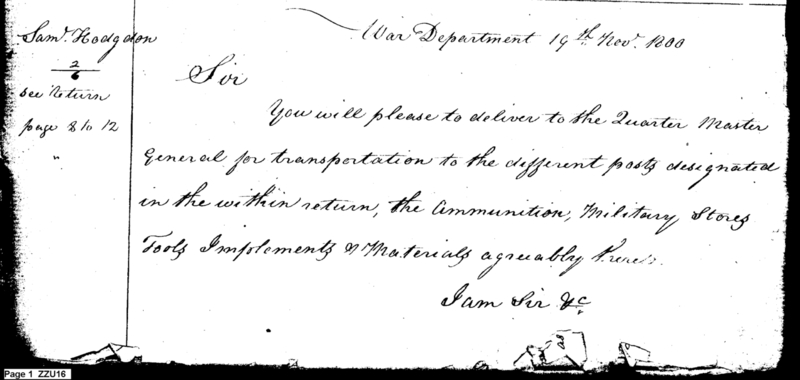 Saml. Hodgdon
2
6
see Return
page 8 to 12
"
War Department 19th. Novr. 1800
Sir
You will please to deliver to the Quarter Master
General for transportation to the different posts designated
in the within return, the Ammunition, Military Stores
Tools Implements & Materials agreeably
I am Sir &c.
Page 1 ZZU16